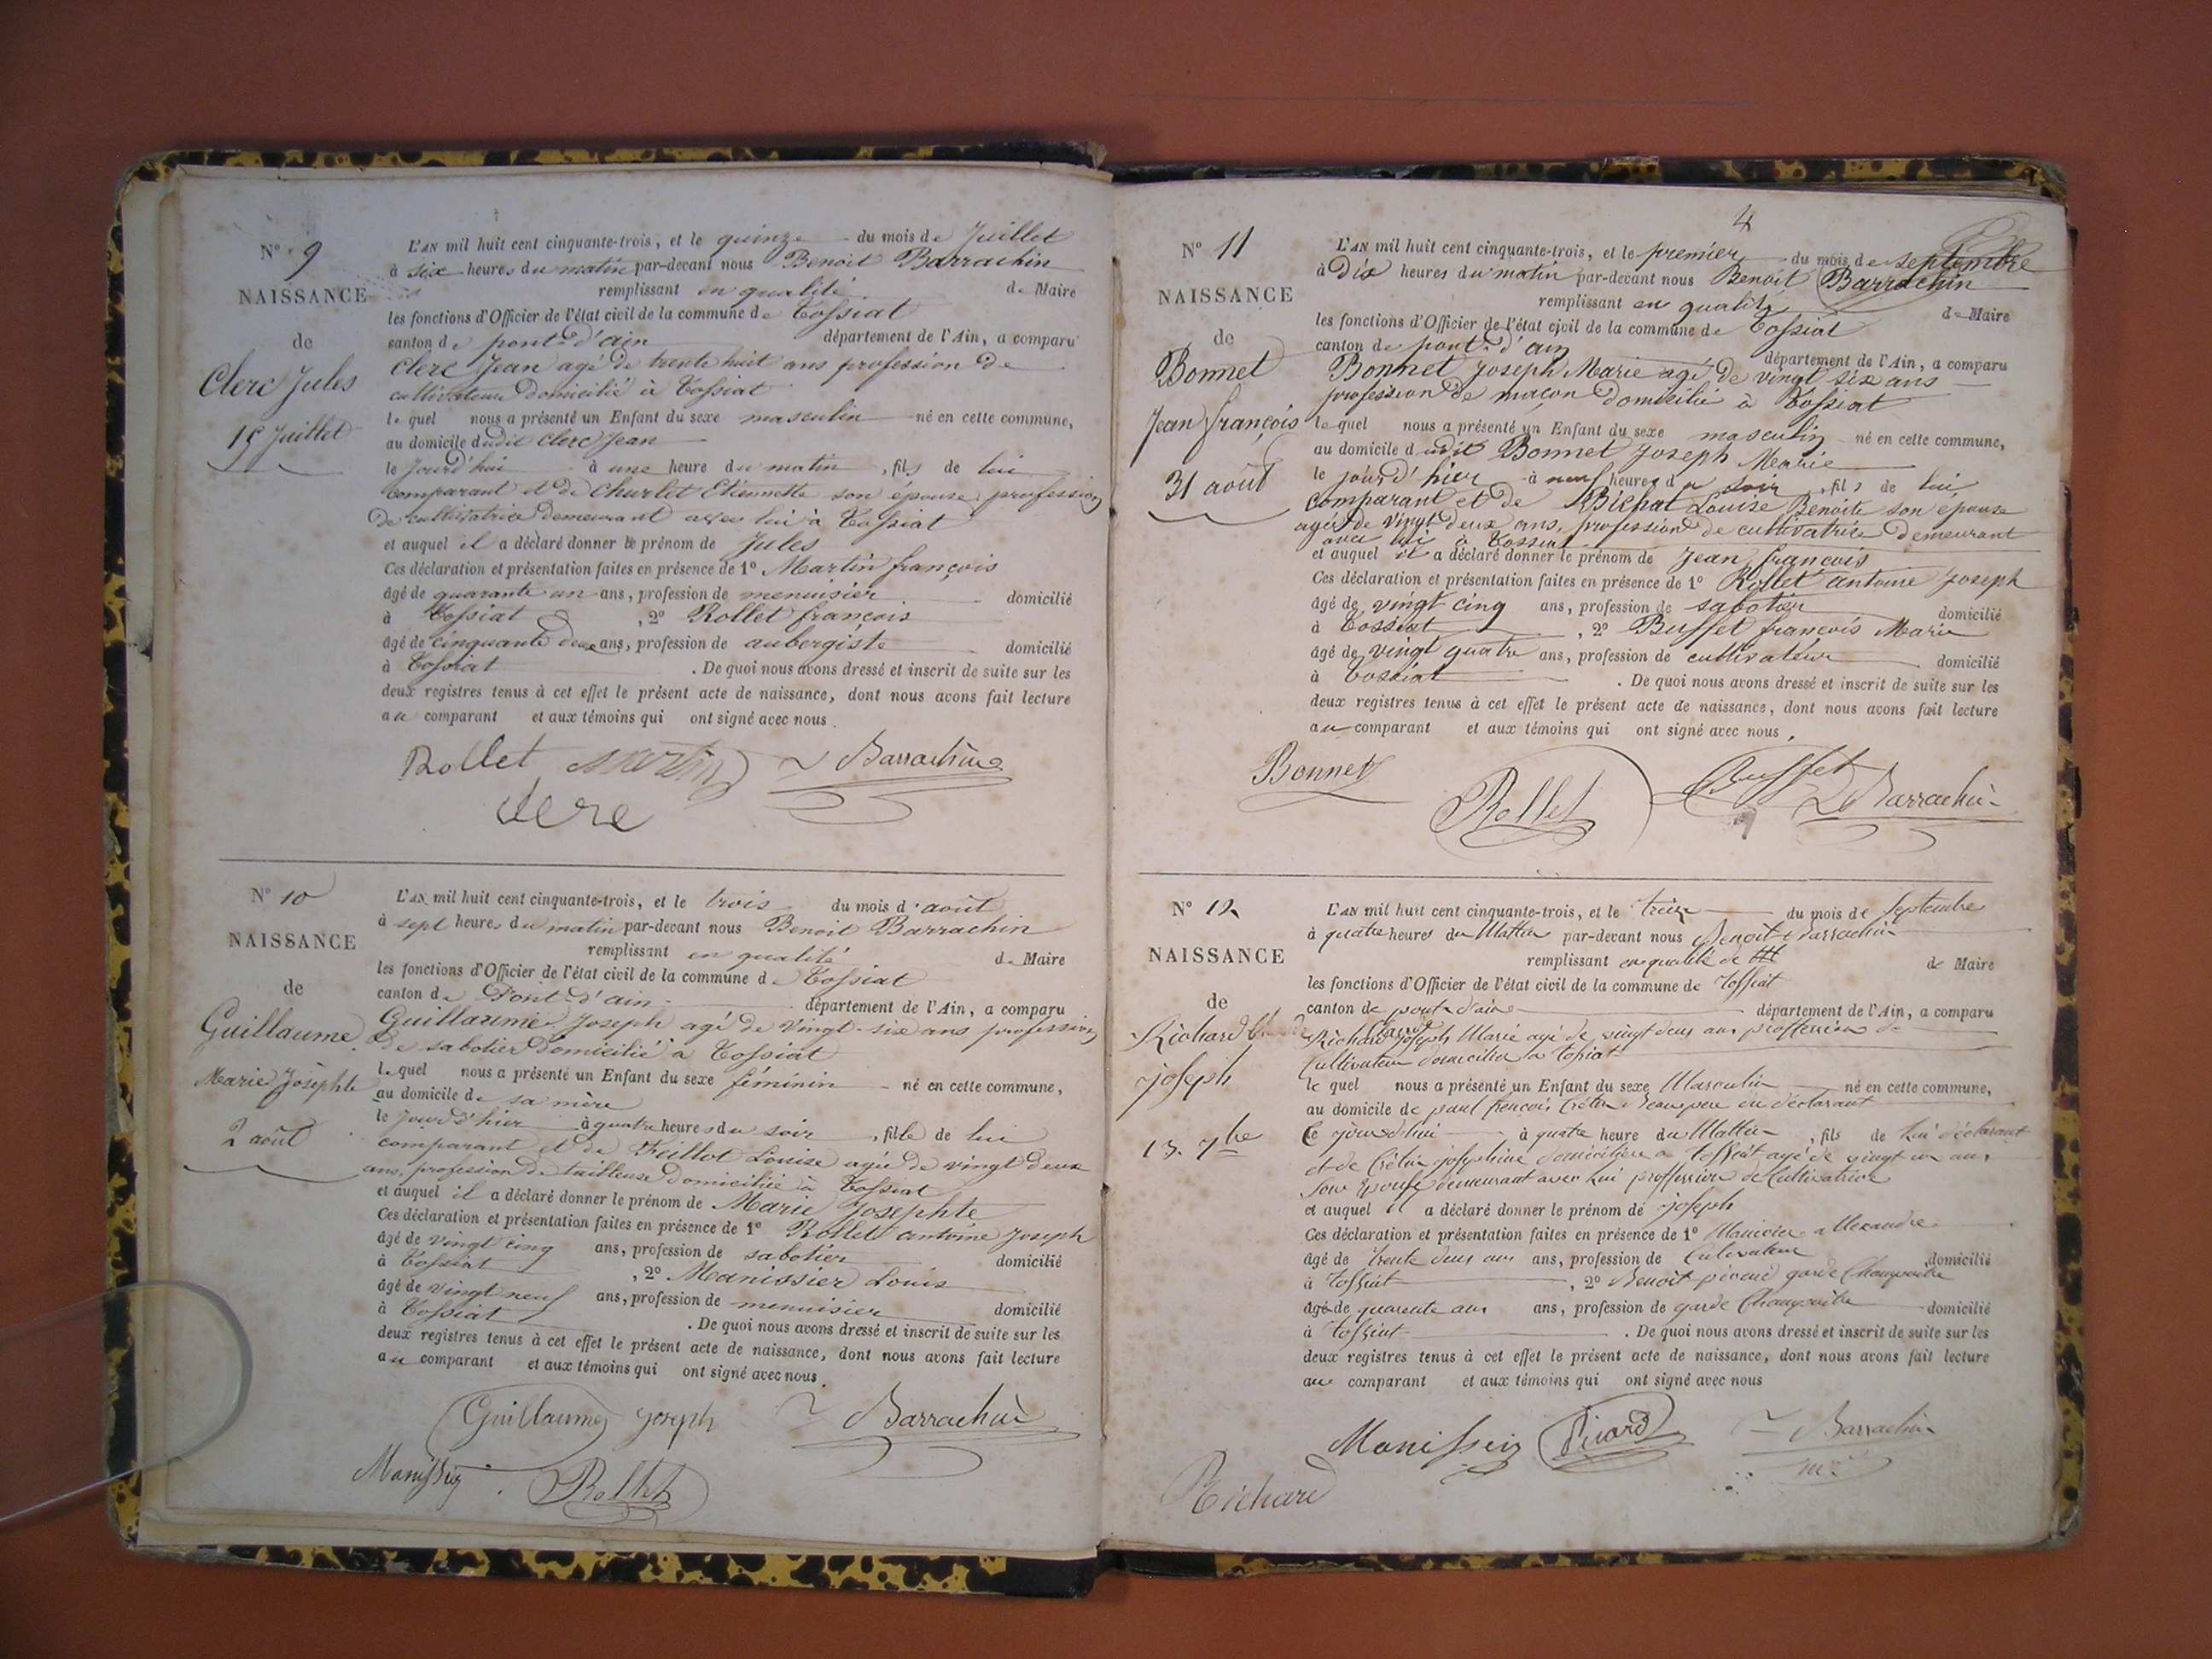 N° 9
NAISSANCE
de
Clerc Jules
15 Juillet
L'AN mil huit cent cinquante-trois, et le quinze du mois de Juillet
à six heures du matin par-devant nous Benoit Barrachin
remplissant en qualité de Maire
les fonctions d'Officier de l'état civil de la commune de Tossiat
canton de pont-d'ain département de l'Ain, a comparu
Clerc Jean agé de trente huit ans profession de
cultivateur domicilié à Tossiat
le quel nous a présenté un Enfant du sexe masculin né en cette commune,
au domicile dudit Clerc Jean
le jourd'hui à une heure du matin, fils de lui
comparant et de Churlet Etiennette son épouse profession
de cultivatrice demeurant avec lui à Tossiat
et auquel il a déclaré donner le prénom de Jules
Ces déclaration et présentation faites en présence de 1° Martin françois
âgé de quarante un ans, profession de menuisier domicilié
à Tossiat, 2° Rollet françois
âgé de cinquante deux ans, profession de aubergiste domicilié
à Tossiat. De quoi nous avons dressé et inscrit de suite sur les
deux registres tenus à cet effet le présent acte de naissance, dont nous avons fait lecture
au comparant et aux témoins qui ont signé avec nous.
Rollet Martin Barrachin
Clerc
N° 10
NAISSANCE
de
Guillaume
Marie Josephte
2 août
L'AN mil huit cent cinquante-trois, et le trois du mois d'août
à sept heures du matin par-devant nous Benoit Barrachin
remplissant en qualité de Maire
les fonctions d'Officier de l'état civil de la commune de Tossiat
canton de Pont-d'ain département de l'Ain, a comparu
Guillaume Joseph agé de vingt-six ans profession
de sabotier domicilié à Tossiat
le quel nous a présenté un Enfant du sexe féminin né en cette commune,
au domicile de sa mère
le jourd'hier à quatre heures du soir, fille de lui
comparant et de Feillot Louise agée de vingt deux
ans, profession de tailleuse domiciliée à Tossiat
et auquel il a déclaré donner le prénom de Marie Josephte
Ces déclaration et présentation faites en présence de 1° Rollet antoine Joseph
âgé de vingt cinq ans, profession de sabotier domicilié
à Tossiat, 2° Manissier Louis
âgé de vingt neuf ans, profession de menuisier domicilié
à Tossiat. De quoi nous avons dressé et inscrit de suite sur les
deux registres tenus à cet effet le présent acte de naissance, dont nous avons fait lecture
au comparant et aux témoins qui ont signé avec nous.
Guillaume joseph Barrachin
Manissier Rollet
4
N° 11
NAISSANCE
de
Bonnet
Jean françois
31 août
L'AN mil huit cent cinquante-trois, et le premier du mois de septembre
à Dix heures du matin par-devant nous Benoit Barrachin
remplissant en qualité de Maire
les fonctions d'Officier de l'état civil de la commune de Tossiat
canton de pont-d'ain département de l'Ain, a comparu
Bonnet Joseph Marie agé de vingt six ans
profession de maçon domicilié à Tossiat
le quel nous a présenté un Enfant du sexe masculin né en cette commune,
au domicile dudit Bonnet Joseph Marie
le jourd'hier à neuf heures du soir, fils de lui
comparant et de Bichat Louise Benoite son épouse
agée de vingt deux ans, profession de cultivatrice demeurant
avec lui à Tossiat
et auquel il a déclaré donner le prénom de Jean françois
Ces déclaration et présentation faites en présence de 1° Rollet antoine Joseph
âgé de vingt cinq ans, profession de sabotier domicilié
à Tossiat, 2° Buffet françois Marie
âgé de vingt quatre ans, profession de cultivateur domicilié
à Tossiat. De quoi nous avons dressé et inscrit de suite sur les
deux registres tenus à cet effet le présent acte de naissance, dont nous avons fait lecture
au comparant et aux témoins qui ont signé avec nous.
Bonnet Rollet Buffet Barrachin
N° 12
NAISSANCE
de
Richard
joseph
13. 7bre
L'AN mil huit cent cinquante-trois, et le treize du mois de Septembre
à quatre heures du Mattin par-devant nous Benoit Barrachin
remplissant en qualité de de Maire
les fonctions d'Officier de l'état civil de la commune de tossiat
canton de pont-d'ain département de l'Ain, a comparu
Richard joseph Marie agé de vingt deux ans proffession de
Cultivateur domicilier a tossiat
le quel nous a présenté un Enfant du sexe Masculin né en cette commune,
au domicile de paul françois Crétin Beaupere du déclarant
le jourdhui à quatre heure du Mattin, fils de lui déclarant
et de Crétin josephine domicilière a tossiat agé de vingt un ans
son Epouse demeurant avec lui proffession de Cultivatrice
et auquel il a déclaré donner le prénom de joseph
Ces déclaration et présentation faites en présence de 1° Manissier allexandre
âgé de trente deux ans ans, profession de Cultivateur domicilié
à tossiat, 2° Benoit picard garde Champaitre
âgé de quarente ans ans, profession de garde Champaitre domicilié
à tossiat. De quoi nous avons dressé et inscrit de suite sur les
deux registres tenus à cet effet le présent acte de naissance, dont nous avons fait lecture
au comparant et aux témoins qui ont signé avec nous
Manissier Picard Barrachin
Richard